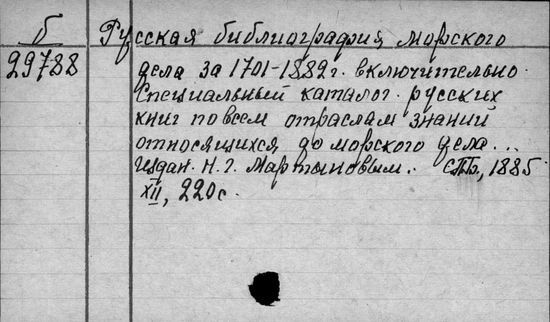 б
29788
Русская библиография морского
дела за 1701-1882г. включительно.
Специальный каталог русских
книг по всем отраслам знаний
относящихся до морского дела...
Издан. Н. Г. Мартыновым. СПБ., 1885
XII, 220с.